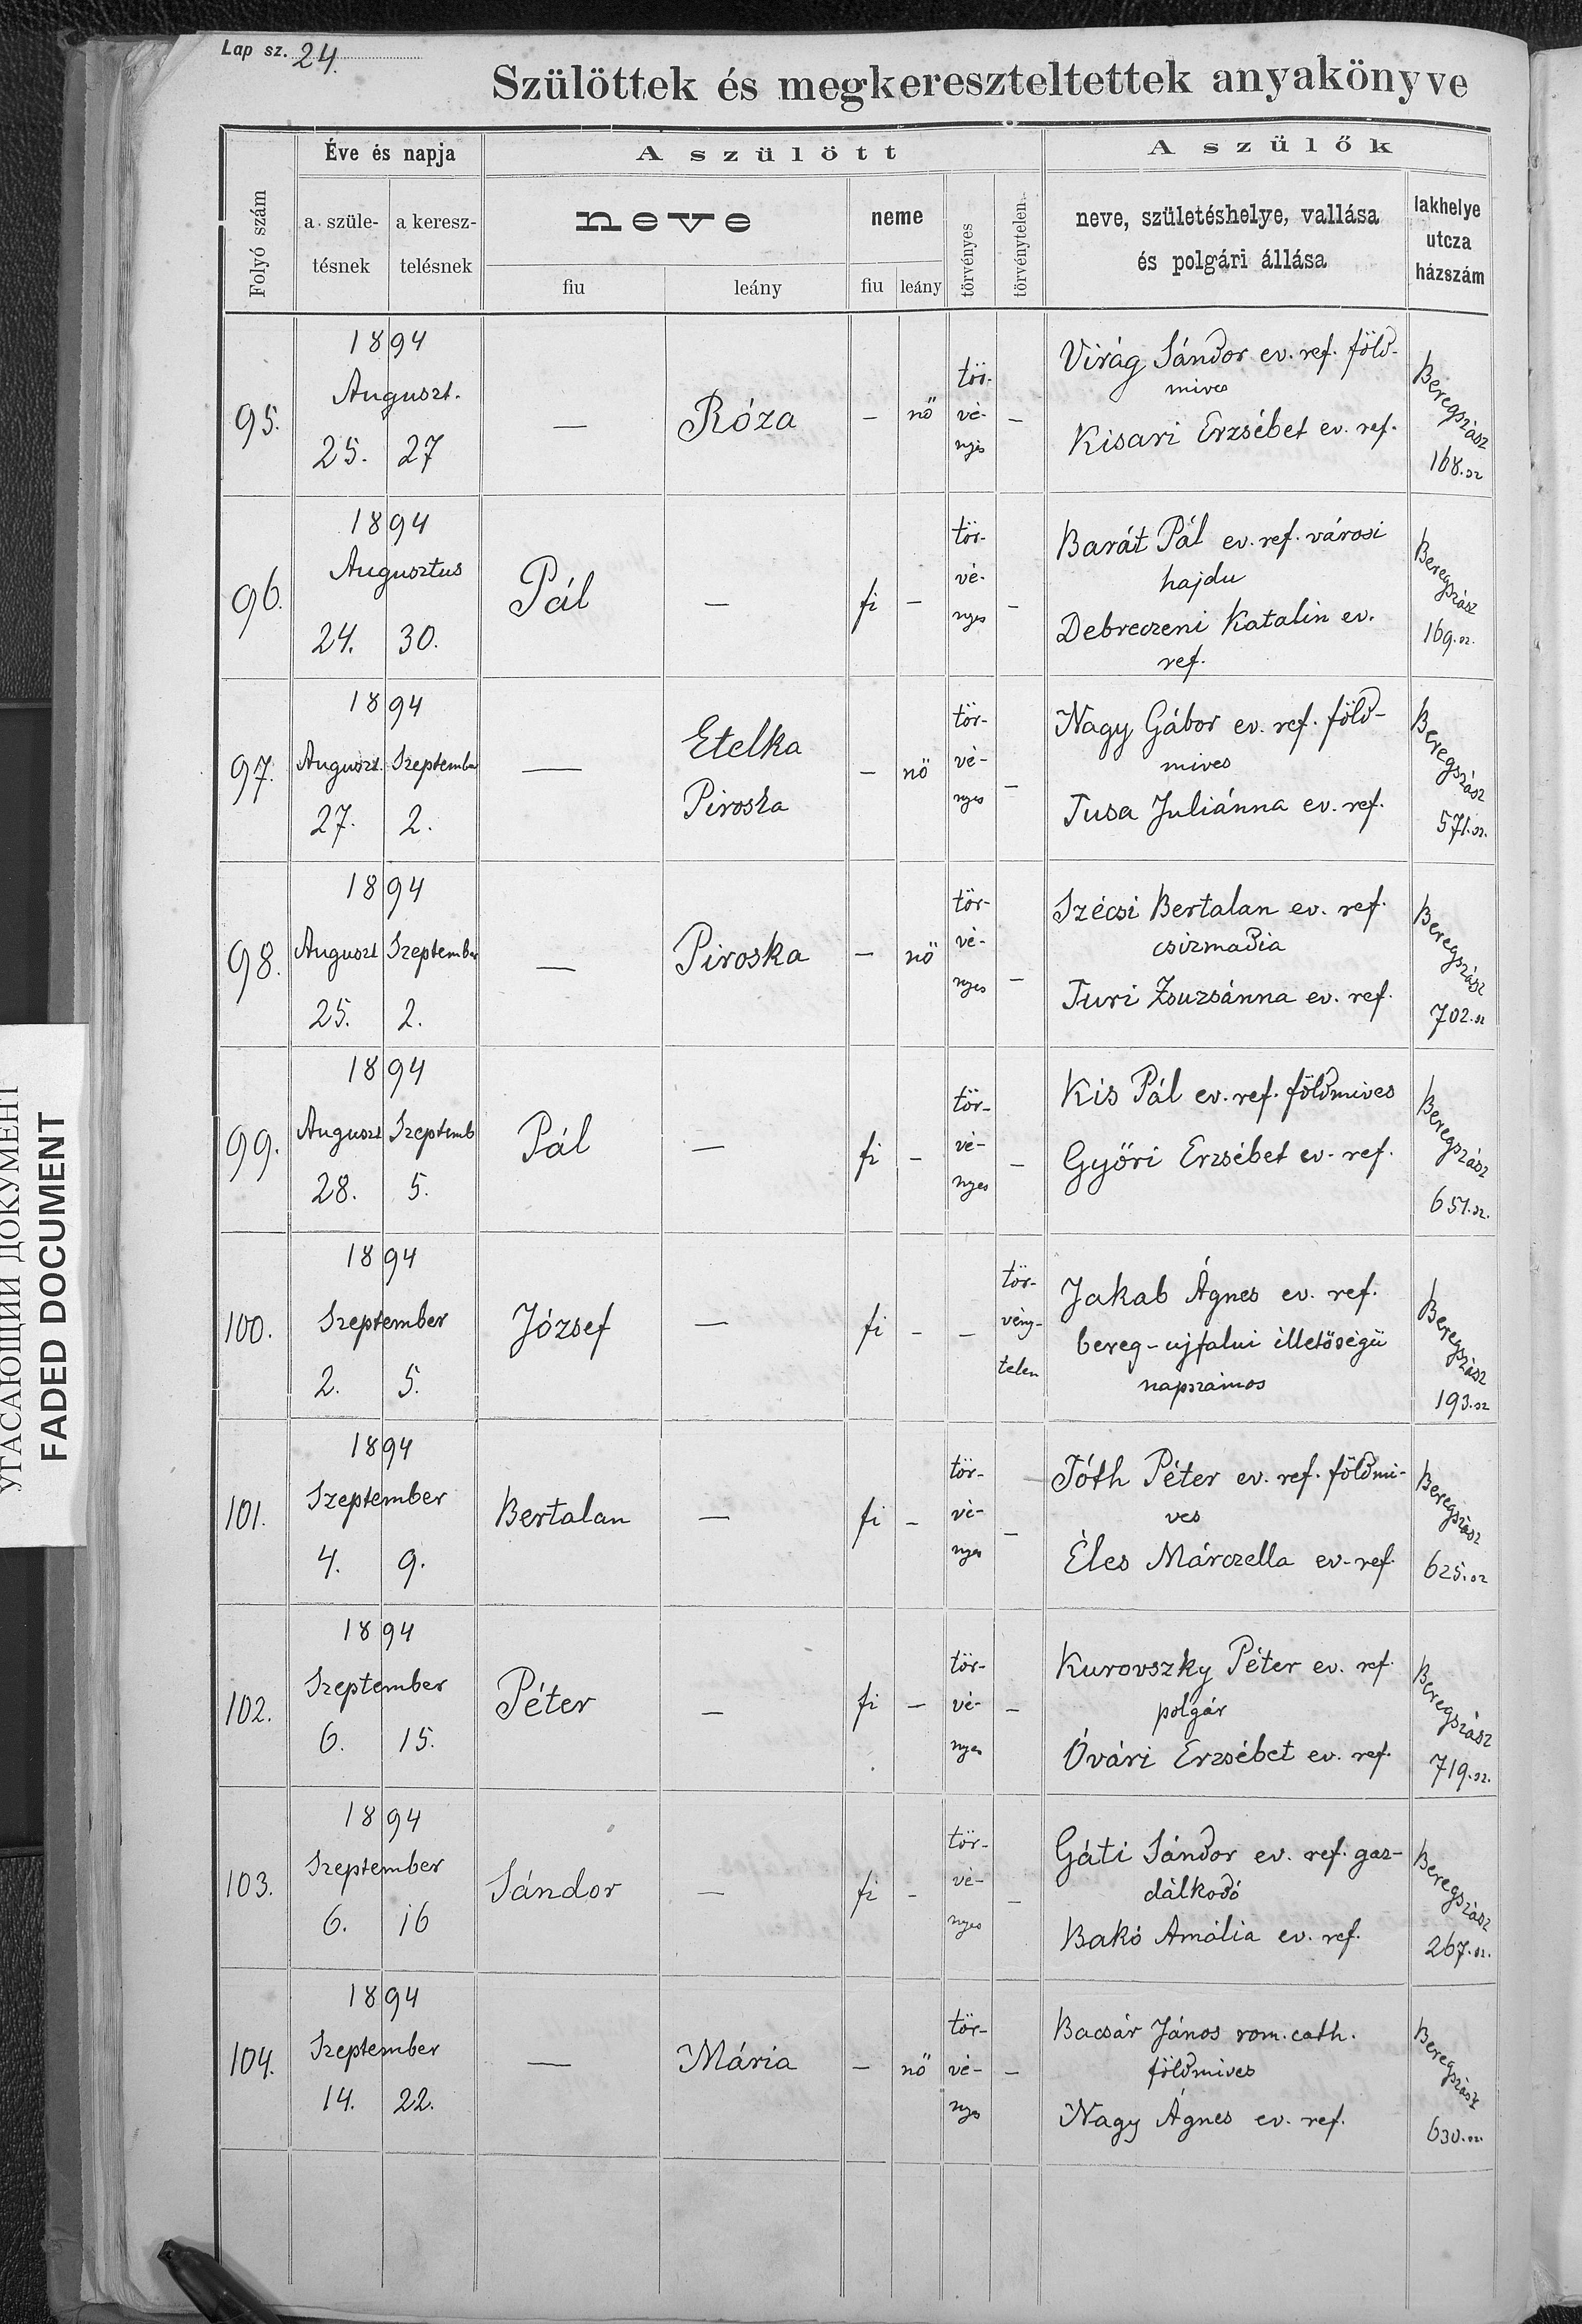 Lap sz. 24.
Szülöttek és megkereszteltettek anyakönyve
Folyó szám
Éve és napja
a születésnek
a keresztelésnek
A szülött
neve
fiu
leány
neme
fiu
leány
törvényes
törvénytelen
A szülők
neve, születéshelye, vallása
és polgári állása
lakhelye
utcza
házszám
95.
1894
Auguszt.
25. 27
—
Róza
— nő
tör-
vé-
nyés
—
Virág Sándor ev. ref. föld-
mives
Kisari Erzsébet ev. ref.
Beregszász
168. sz
96.
1894
Augusztus
24. 30.
Pál
—
fi —
tör-
vé-
nyes
—
Barát Pál ev. ref. városi
hajdu
Debreczeni Katalin ev.
ref.
Beregszász
169. sz.
97.
1894
Auguszt. Szeptember
27. 2.
—
Etelka
Piroska
— nő
tör-
vé-
nyes
—
Nagy Gábor ev. ref. föld-
mives
Tusa Juliánna ev. ref.
Beregszász
571. sz.
98.
1894
Auguszt Szeptember
25. 2.
—
Piroska
— nő
tör-
vé-
nyes
—
Szécsi Bertalan ev. ref.
csizmadia
Turi Zsuzsánna ev. ref.
Beregszász
702. sz
99.
1894
Auguszt Szeptemb
28. 5.
Pál
—
fi —
tör-
vé-
nyes
—
Kis Pál ev. ref. földmives
Győri Erzsébet ev. ref.
Beregszász
651. sz.
100.
1894
Szeptember
2. 5.
József
—
fi — —
tör-
vény-
telen
Jakab Ágnes ev. ref.
bereg-ujfalui illetőségü
napszámos
Beregszász
193. sz
101.
1894
Szeptember
4. 9.
Bertalan
—
fi —
tör-
vé-
nyes
—
Tóth Péter ev. ref. földmi-
ves
Éles Márczella ev. ref.
Beregszász
625. sz
102.
1894
Szeptember
6. 15.
Péter
—
fi —
tör-
vé-
nyes
—
Kurovszky Péter ev. ref.
polgár
Óvári Erzsébet ev. ref.
Beregszász
719. sz.
103.
1894
Szeptember
6. 16
Sándor
—
fi —
tör-
vé-
nyes
—
Gáti Sándor ev. ref. gaz-
dálkodó
Bakó Amália ev. ref.
Beregszász
267. sz.
104.
1894
Szeptember
14. 22.
—
Mária
— nő
tör-
vé-
nyes
—
Bacsár János rom. cath.
földmives
Nagy Ágnes ev. ref.
Beregszász
630. sz.
УГАСАЮЩИЙ ДОКУМЕНТ
FADED DOCUMENT